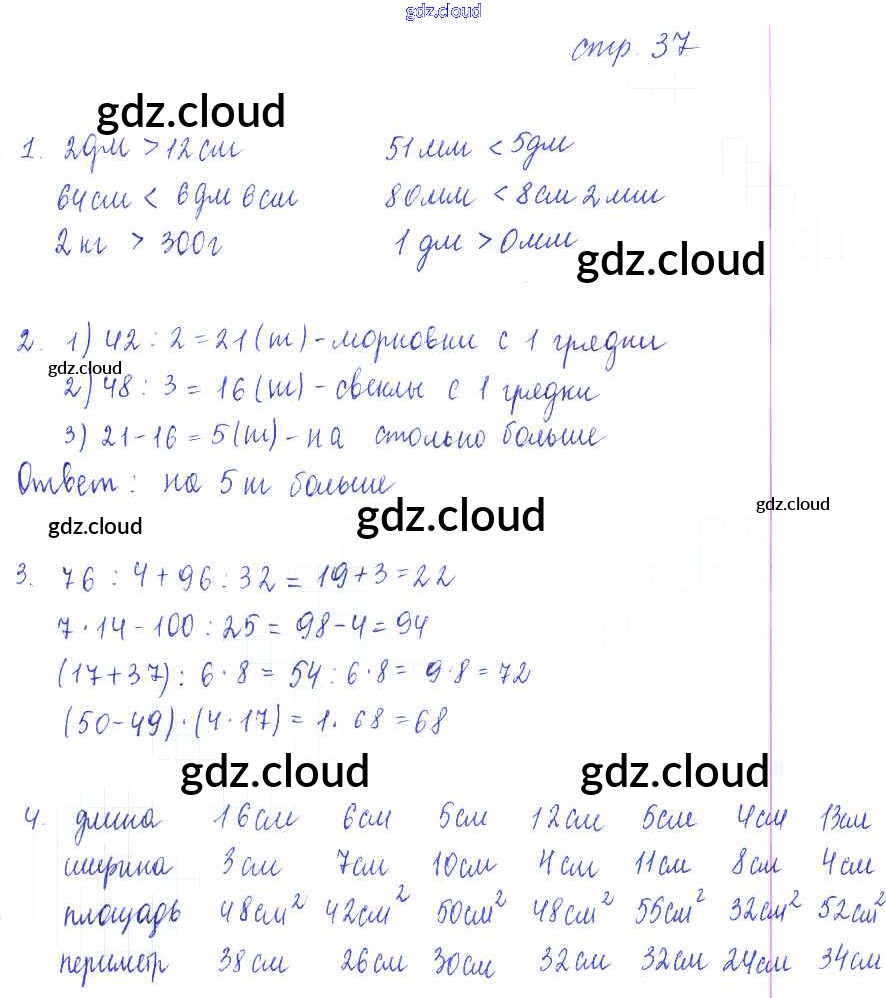 gdz.cloud
стр. 37
gdz.cloud
1. 2дм > 12см 51мм < 5дм
64см < 6дм 6см 80мм < 8см 2мм
2кг > 300г 1дм > 0мм
gdz.cloud
2. 1) 42 : 2 = 21(т) - морковки с 1 грядки
gdz.cloud
2) 48 : 3 = 16(т) - свеклы с 1 грядки
3) 21 - 16 = 5(т) - на столько больше
Ответ: на 5т больше
gdz.cloud gdz.cloud gdz.cloud
3. 76 : 4 + 96 : 32 = 19 + 3 = 22
7 · 14 - 100 : 25 = 98 - 4 = 94
(17 + 37) : 6 · 8 = 54 : 6 · 8 = 9 · 8 = 72
(50 - 49) · (4 · 17) = 1 · 68 = 68
gdz.cloud gdz.cloud
4. длина 16см 6см 5см 12см 5см 4см 13см
ширина 3см 7см 10см 4см 11см 8см 4см
площадь 48см² 42см² 50см² 48см² 55см² 32см² 52см²
периметр 38см 26см 30см 32см 32см 24см 34см